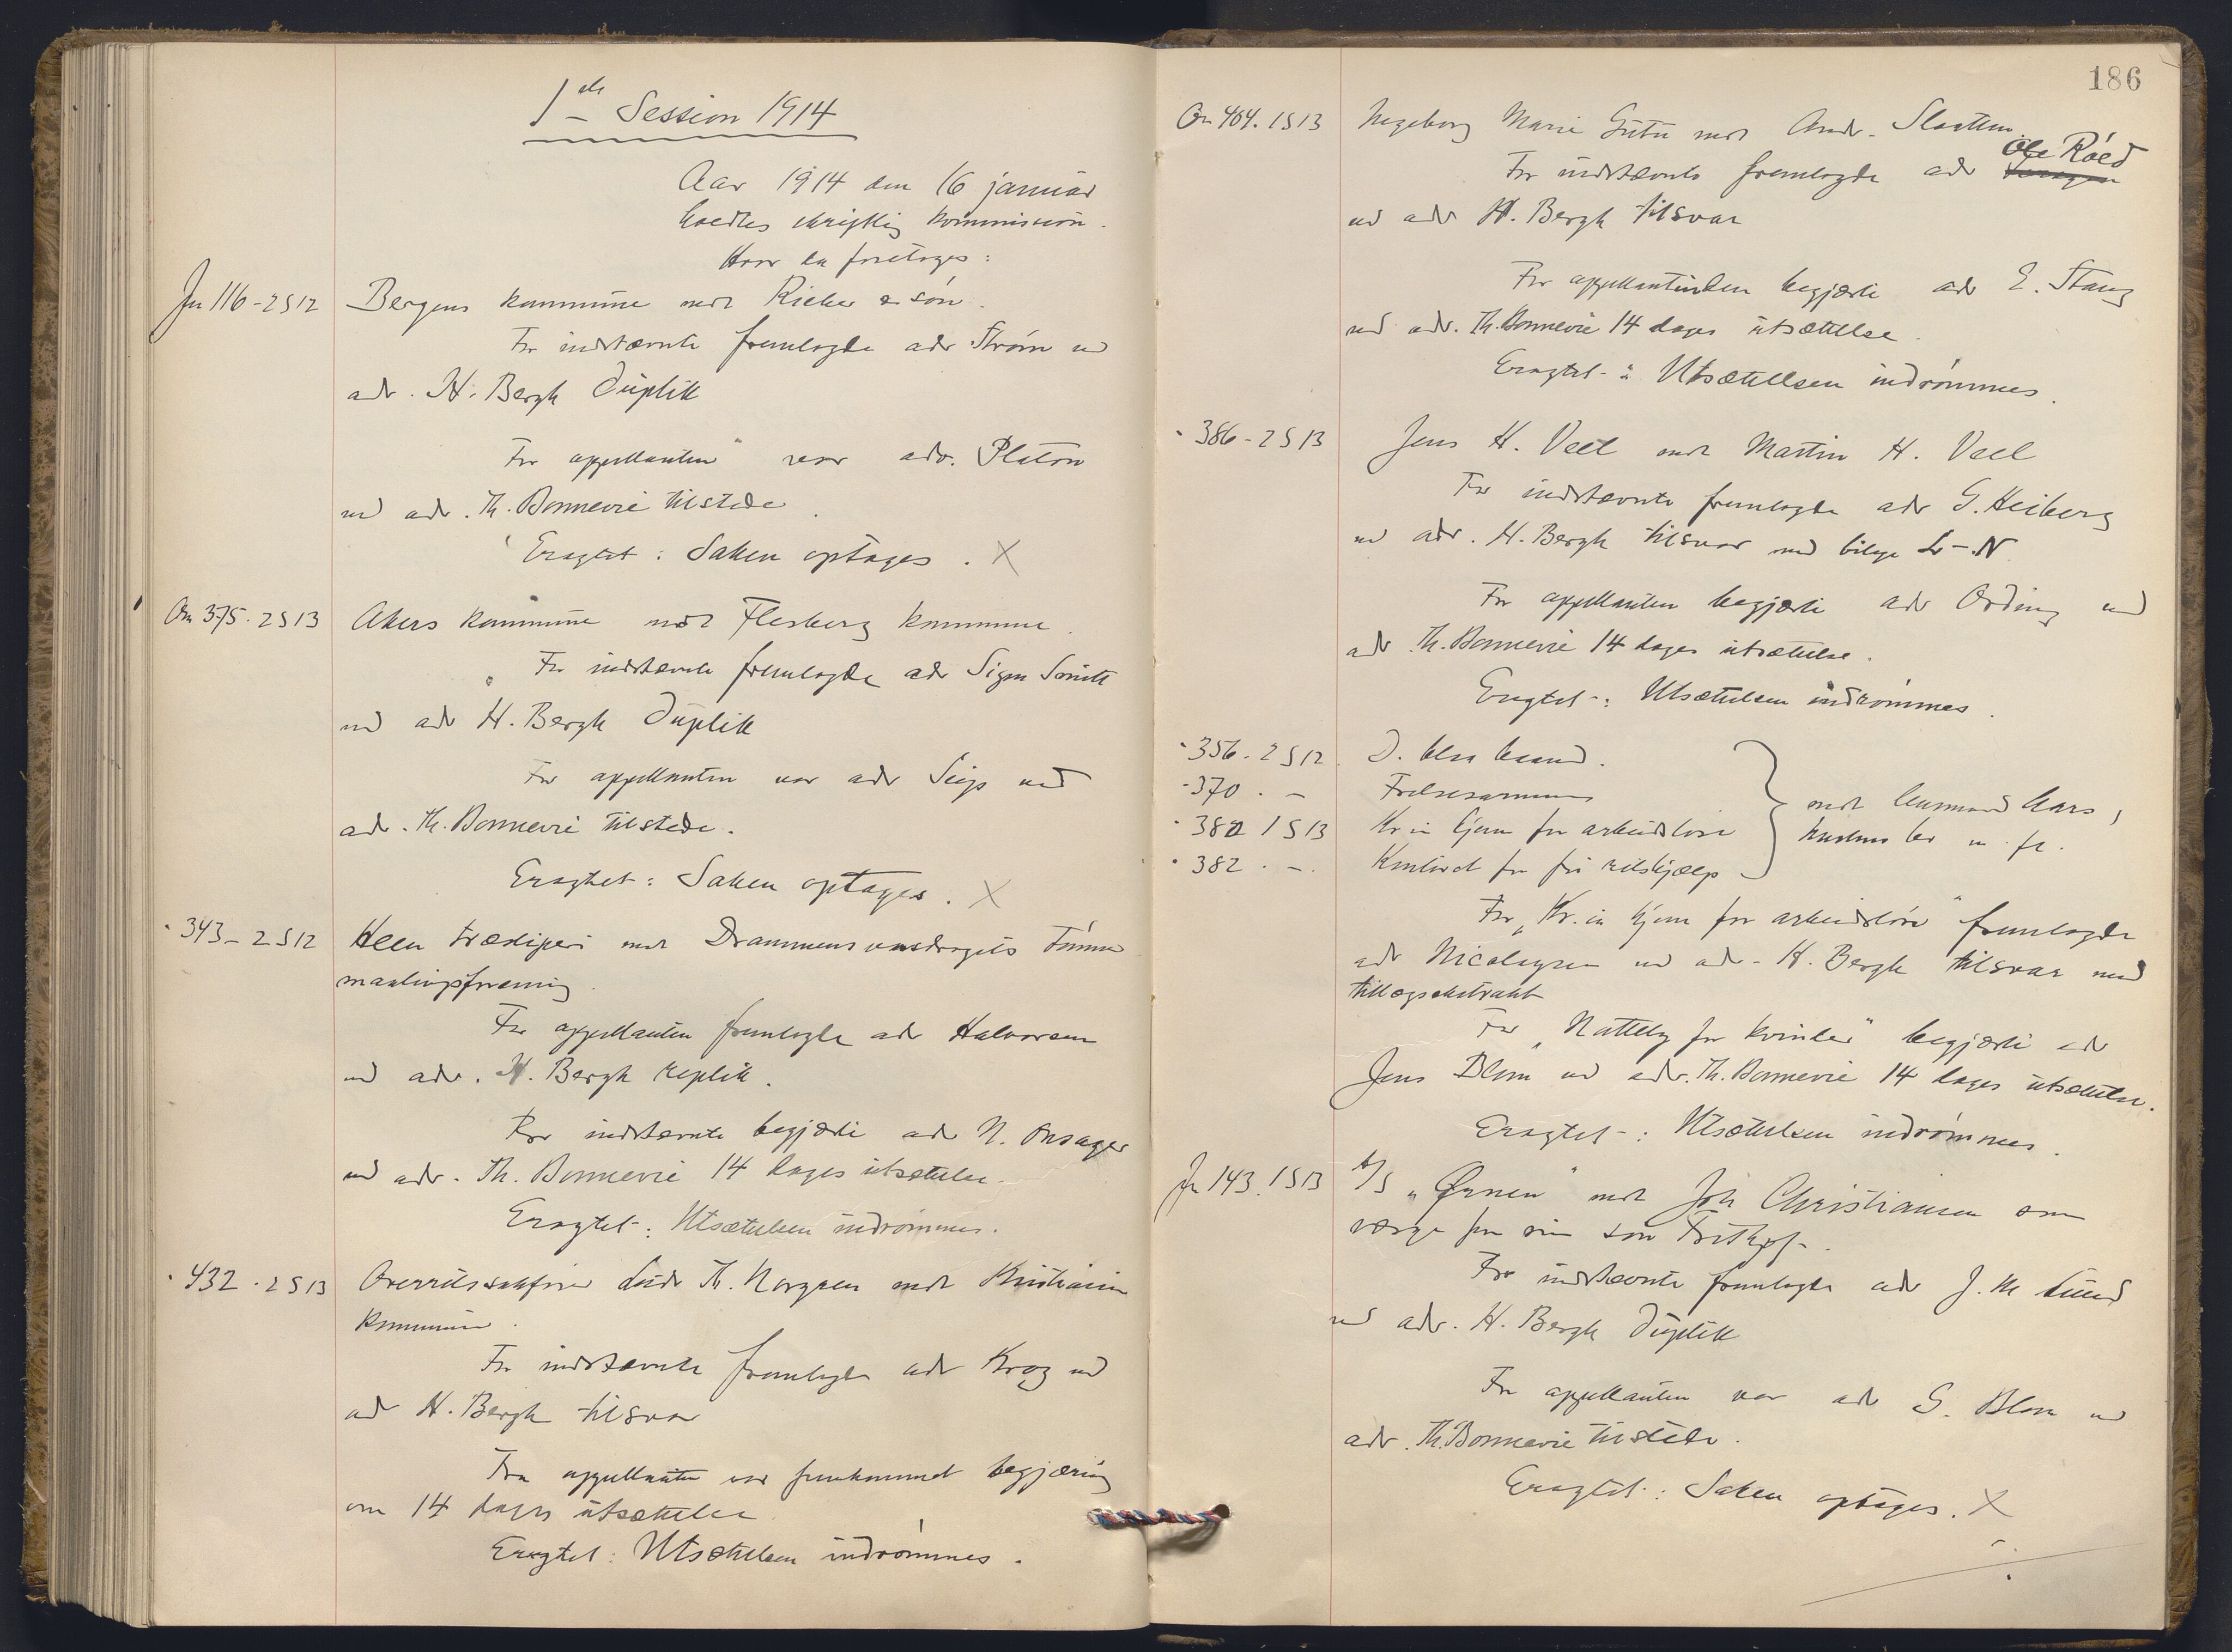 1ste Session 1914
Aar 1914 den 16 januar
holdtes skriftlig kommission.
Hvor da foretoges:
Jn 116 - 2 S 12 Bergens kommune mot Rieber & søn.
For indstævnte fremlagde adv Strøm ved
adv. H. Bergh duplik
For appellanten var adv. Platou
ved adv. Th. Bonnevie tilstede.
Eragtet: Saken optages. X
On 375. 2 S 13 Akers kommune mot Flesberg kommune.
For indstævnte fremlagde adv Sigm Smith
ved adv H. Bergh duplik
For appellanten var adv Seip ved
adv. Th. Bonnevie tilstede.
Eragtet: Saken optages. X
" 343 - 2 S 12 Heen træsliperi mot Drammensvasdragets Tømmer
maalingsforening.
For appellanten fremlagde adv Halvorsen
ved adv. H. Bergh replik.
For indstævnte begjærte adv N. Onsager
ved adv. Th. Bonnevie 14 dages utsættelse.
Eragtet: Utsættelsen indrømmes.
" 432. 2 S 13 Overretssakfører Th. Norgren mot Kristiania
kommune.
For indstævnte fremlagde adv Krog ved
adv H. Bergh tilsvar
Fra appellanten var fremkommet begjæring
om 14 dages utsættelse
Eragtet: Utsættelsen indrømmes.
186
On 404. 1 S 13 Ingeborg Marie mot And. Slaatten.
Ole Røed
For indstævnte fremlagde adv
ved adv H. Bergh tilsvar
For appellantinden begjærte adv E. Stang
ved adv. Th. Bonnevie 14 dages utsættelse.
Eragtet: Utsættelsen indrømmes.
" 386 - 2 S 13 Jens H. Veel mot Martin H. Veel
For indstævnte fremlagde adv G. Heiberg
ved adv. H. Bergh tilsvar med bilage L - N
For appellanten begjærte adv Ording ved
adv Th. Bonnevie 14 dages utsættelse.
Eragtet: Utsættelsen indrømmes.
" 356. 2 S 12 D. blaa baand.
" 370. - Frelsesarmeen
" 380 1 S 13 Kr.ia hjem for arbeidsløse
" 382. - Kontoret for fri retshjælp
mot
m. fl.
For "Kr.ia hjem for arbeidsløse" fremlagde
adv Nicolaysen ved adv. H. Bergh tilsvar med
tillægsekstrakt
For "Natteby for kvinder" begjærte adv
Jens Blom ved adv. Th. Bonnevie 14 dages utsættelse.
Eragtet: Utsættelsen indrømmes.
Jn 143. 1 S 13 A/S "Ørnen" mot Joh Christiansen som
værge for sin søn Frithjof.
For indstævnte fremlagde adv J. M. Lund
ved adv. H. Bergh duplik
For appellanten var adv G. Blom ved
adv. Th. Bonnevie tilstede.
Eragtet: Saken optages. X